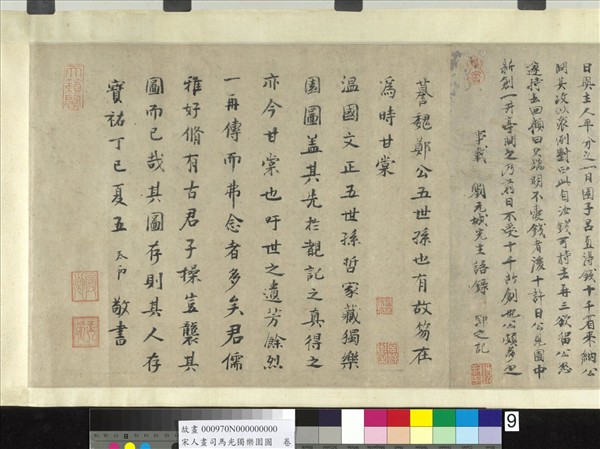 日與主人平分之一日園子呂直得錢十千省來納公
問其故以衆例對曰此自汝錢可持去再三欲留公怒
遂持去回顧曰只端明不愛錢者後十許日公見園中
新創一井亭問之乃前日不受十千所創也公頗多之
事載 劉元城先生語錄
謩魏鄭公五世孫也有故笏在
為時甘棠
溫國文正五世孫哲家藏獨樂
園圖蓋其先於覩記之真得之
亦今甘棠也吁世之遺芳餘烈
一再傳而弗念者多矣君儒
雅好脩有古君子操豈襲其
圖而已哉其圖存則其人存
寶祐丁巳夏五 敬書
9
故畫 000970N000000000
宋人畫司馬光獨樂園圖 卷